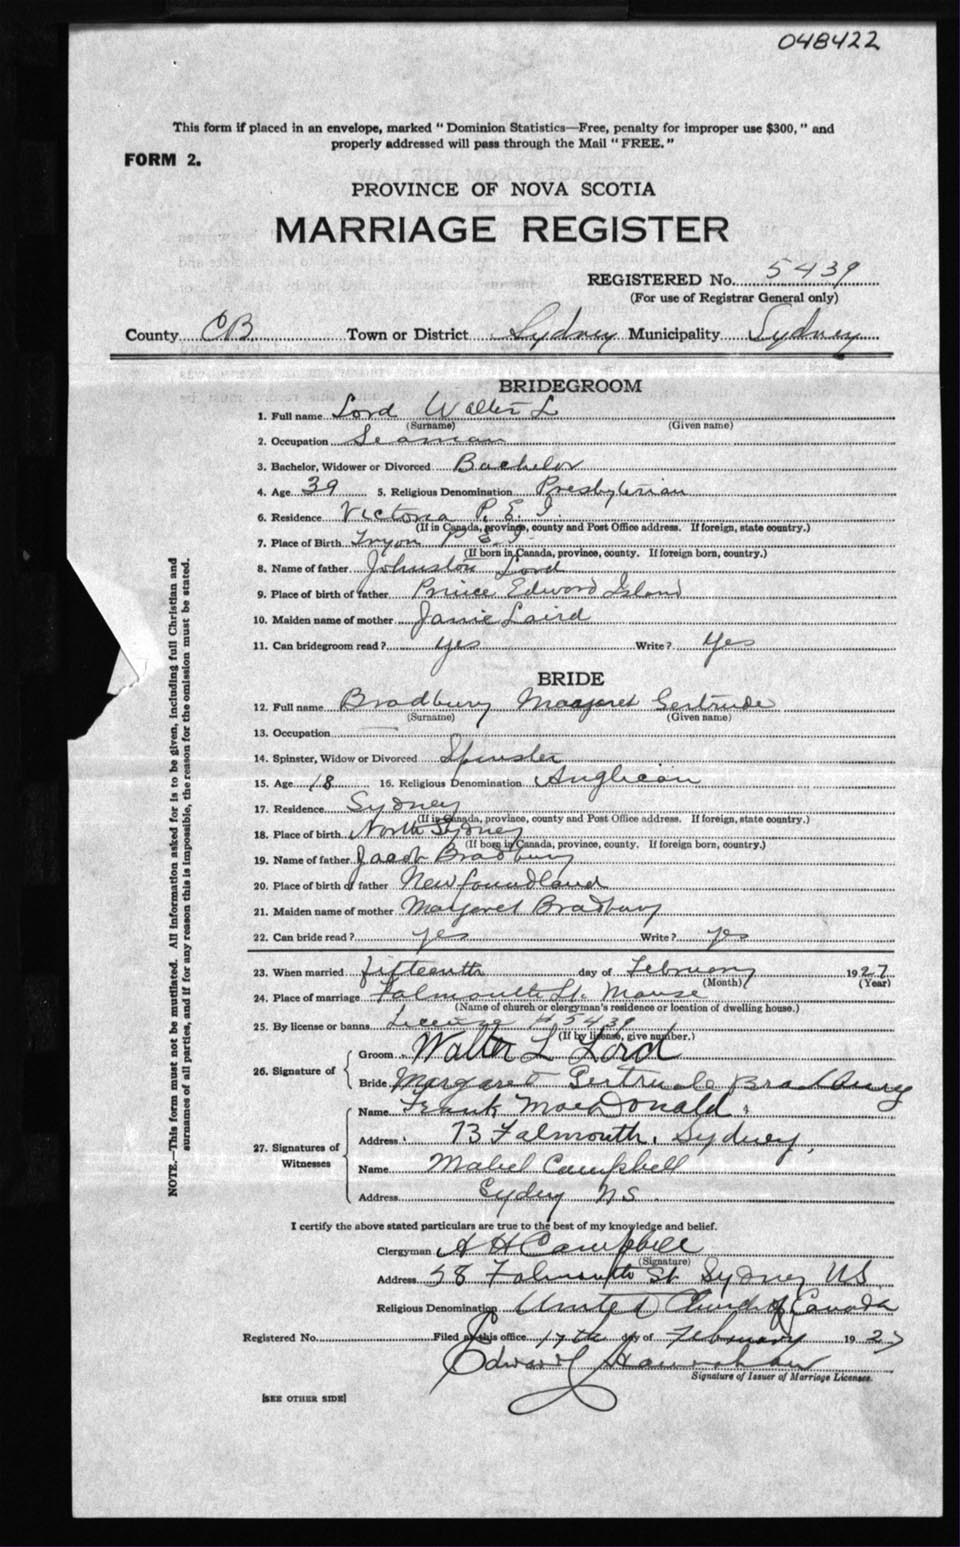 048422
This form if placed in an envelope, marked "Dominion Statistics—Free, penalty for improper use $300," and
properly addressed will pass through the Mail "FREE."
FORM 2.
PROVINCE OF NOVA SCOTIA
MARRIAGE REGISTER
REGISTERED No. 5439
(For use of Registrar General only)
County CB Town or District Sydney Municipality Sydney
BRIDEGROOM
1. Full name Lord Walter L
(Surname) (Given name)
2. Occupation Seaman
3. Bachelor, Widower or Divorced Bachelor
4. Age 39 5. Religious Denomination Presbyterian
6. Residence Victoria P. E. I.
(If in Canada, province, county and Post Office address. If foreign, state country.)
7. Place of Birth Tryon P E I.
(If born in Canada, province, county. If foreign born, country.)
8. Name of father Johnston Lord
9. Place of birth of father Prince Edward Island
10. Maiden name of mother Janie Laird
11. Can bridegroom read? yes Write? yes
BRIDE
12. Full name Bradbury Margaret Gertrude
(Surname) (Given name)
13. Occupation
14. Spinster, Widow or Divorced Spinster
15. Age 18 16. Religious Denomination Anglican
17. Residence Sydney
(If in Canada, province, county and Post Office address. If foreign, state country.)
18. Place of birth North Sydney
(If born in Canada, province, county. If foreign born, country.)
19. Name of father Jacob Bradbury
20. Place of birth of father Newfoundland
21. Maiden name of mother Margaret Bradbury
22. Can bride read? yes Write? yes
23. When married fifteenth day of February 1927
(Month) (Year)
24. Place of marriage Falmouth St. Manse
(Name of church or clergyman's residence or location of dwelling house.)
25. By license or banns License # 5439
(If by license, give number.)
26. Signature of
Groom Walter L Lord
Bride Margaret Gertrude Bradbury
27. Signatures of Witnesses
Name Frank MacDonald
Address 73 Falmouth, Sydney,
Name Mabel Campbell
Address Sydney N.S.
I certify the above stated particulars are true to the best of my knowledge and belief.
Clergyman A H Campbell
(Signature)
Address 58 Falmouth St Sydney NS
Religious Denomination United Church of Canada
Registered No. Filed at this office 17th day of February 1927
Edward
Signature of Issuer of Marriage Licenses.
[SEE OTHER SIDE]
NOTE.—This form must not be mutilated. All information asked for is to be given, including full Christian and
surnames of all parties, and if for any reason this is impossible, the reason for the omission must be stated.